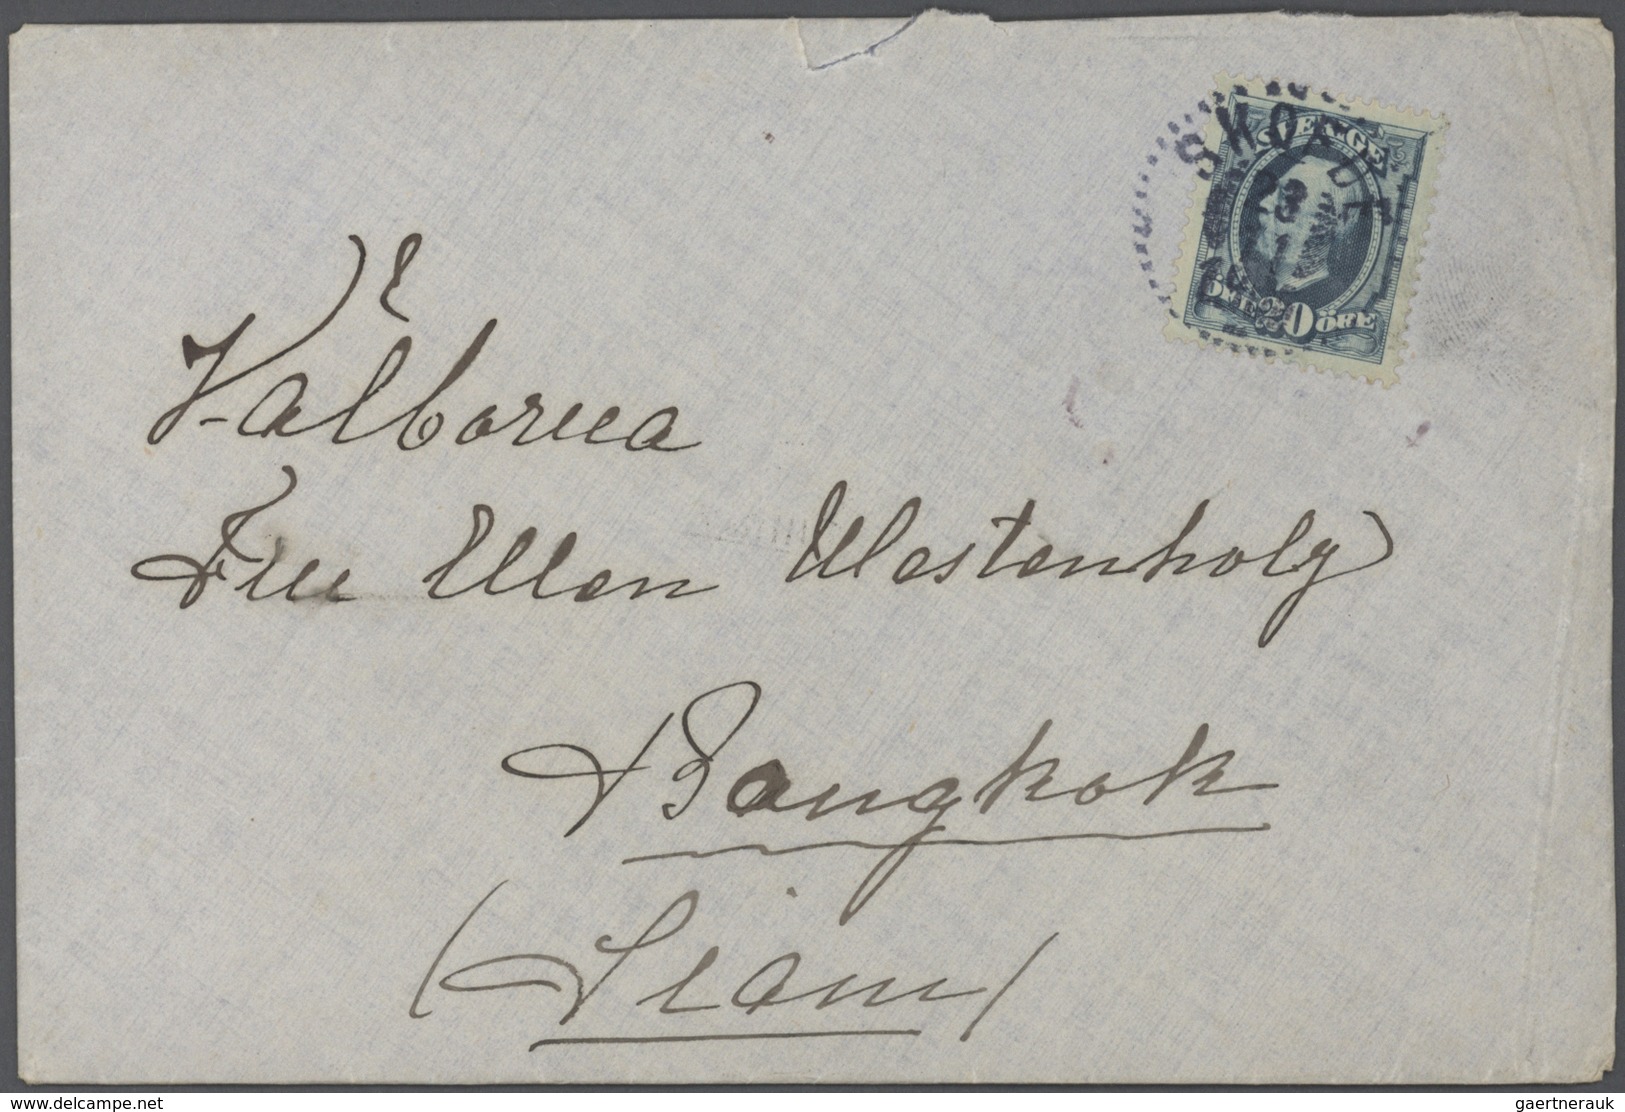 SKÖFDE
23
1
SVERIGE
20
ÖRE
Välborna
Fru Ellen Westenholz
Bangkok
(Siam)
www.delcampe.net
gaertnerauk